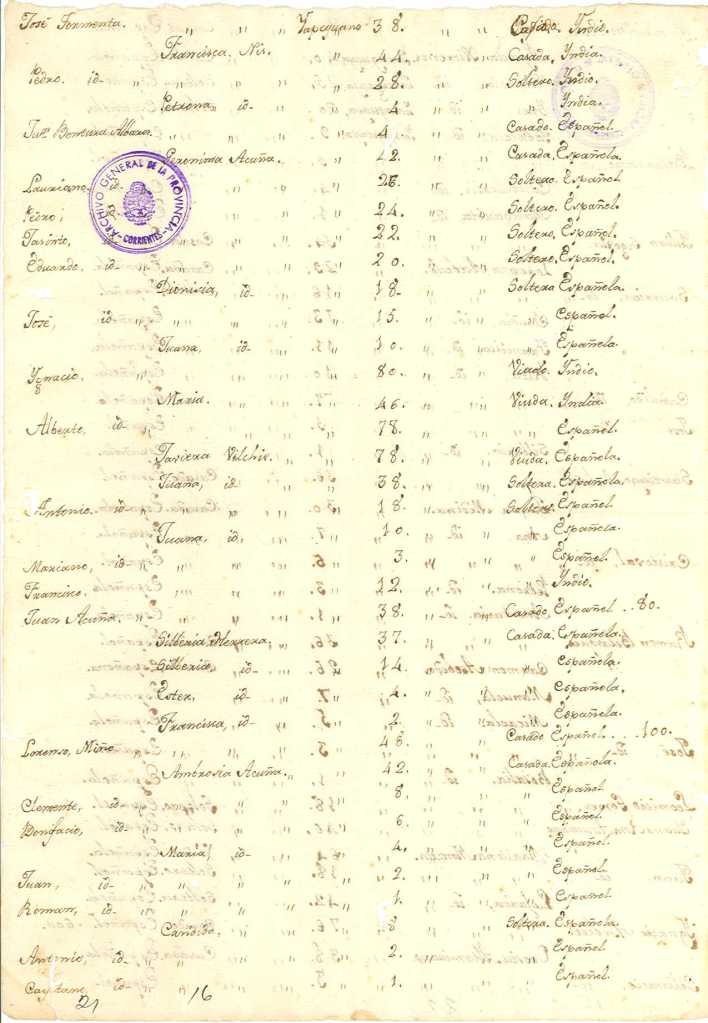 José Tormenta. " " " Yapeyuano 38. " " Casado. Yndio.
Francisca Nis. " " " 44. " " Casada, Yndia.
Pedro. id- " " " 28. " " Soltero. Yndio.
Petrona id- " " " 4 " " " Yndia.
Bentura " " " 4 " " Casado. Español.
Geronima Acuña. " " " 42. " " Casada, Española.
Lauriano, id- " " " 26. " " Soltero. Español
Pedro; " " " 24. " " Soltero. Español.
id- " " " 22. " " Soltero, Español.
Eduardo. id- " " " 20. " " Soltero, Español.
Dionisia, id- " " " 18- " " Soltera Española.
José, id- " " " 15. " " Español.
Juana, id- " " " 10. " " Española.
Ygnacio. " " " 80. " " Viudo. Yndio.
Maria. " " " 46. " " Viuda. Yndia
Alberto, id- " " " 78. " " Español.
Javiera " " " 78. " " Viuda. Española.
Juana, id " " " 38. " " Soltera. Española.
Antonio. id- " " " 18. " " Español.
Juana, id, " " " 10. " " Española.
Mariano, id- " " " 3. " " " Español.
Francisco. " " " 12. " " Yndio.
Juan Acuña. " " " 38. " " Casado, Español ..80.
Silberia Herrera, " " " 37. " " Casada. Española.
Silberio, id- " " " 14. " " Española.
Ester, id- " " " 4. " " Española,
Francisca, id- " " " 2. " " Española.
Lorenso, Miño " " " 48. " " Casado Español....100.
Ambrosia Acuña. " " " 42. " " Casada. Española.
Clemente, id- " " " 8. " " Español
Bonifacio, id- " " " 6. " " Española.
Maria, id- " " " 4. " " Español.
Juan, id- " " " 2. " " Español.
Roman, id- " " " 1. " " Español
Candida. " " " 8 " " Soltera. Española.
Antonio, id- " " " 2. " " Español
Cayetano, id- " " " 1. " " Español.
21 16
ARCHIVO GENERAL DE LA PROVINCIA
CORRIENTES